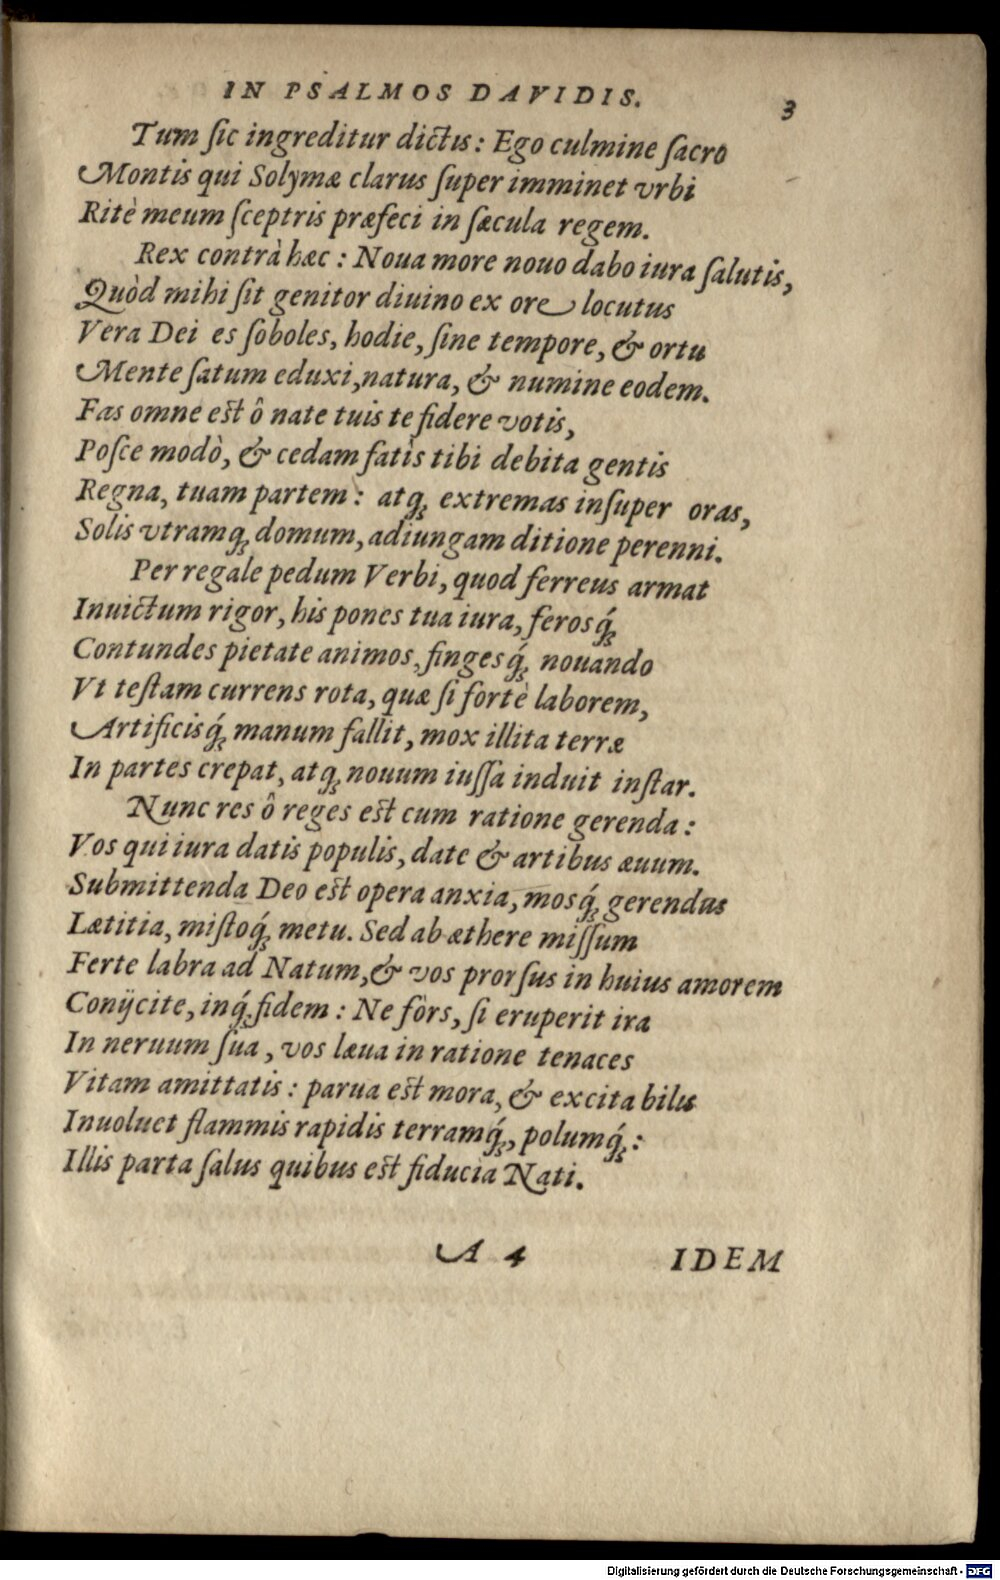 IN PSALMOS DAVIDIS. 3
Tum ſic ingreditur dictis: Ego culmine ſacro
Montis qui Solymæ clarus ſuper imminet vrbi
Ritè meum ſceptris præfeci in ſæcula regem.
Rex contrà hæc: Noua more nouo dabo iura ſalutis,
Quòd mihi ſit genitor diuino ex ore locutus
Vera Dei es ſoboles, hodie, ſine tempore, & ortu
Mente ſatum eduxi, natura, & numine eodem.
Fas omne est ô nate tuis te fidere votis,
Poſce modò, & cedam fatis tibi debita gentis
Regna, tuam partem: atq; extremas inſuper oras,
Solis vtramq; domum, adiungam ditione perenni.
Per regale pedum Verbi, quod ferreus armat
Inuictum rigor, his pones tua iura, ferosq́;
Contundes pietate animos, fingesq́; nouando
Vt teſtam currens rota, quæ ſi fortè laborem,
Artificisq́; manum fallit, mox illita terræ
In partes crepat, atq; nouum iuſſa induit inſtar.
Nunc res ô reges est cum ratione gerenda:
Vos qui iura datis populis, date & artibus æuum.
Submittenda Deo est opera anxia, mosq́; gerendus
Lætitia, miſtoq́; metu. Sed ab æthere miſſum
Ferte labra ad Natum, & vos prorſus in huius amorem
Conijcite, inq́; fidem: Ne fòrs, ſi eruperit ira
In neruum ſua, vos læua in ratione tenaces
Vitam amittatis: parua est mora, & excita bilis
Inuoluet flammis rapidis terramq́;, polumq́;:
Illis parta ſalus quibus est fiducia Nati.
A 4 IDEM
Digitalisierung gefördert durch die Deutsche Forschungsgemeinschaft - DFG